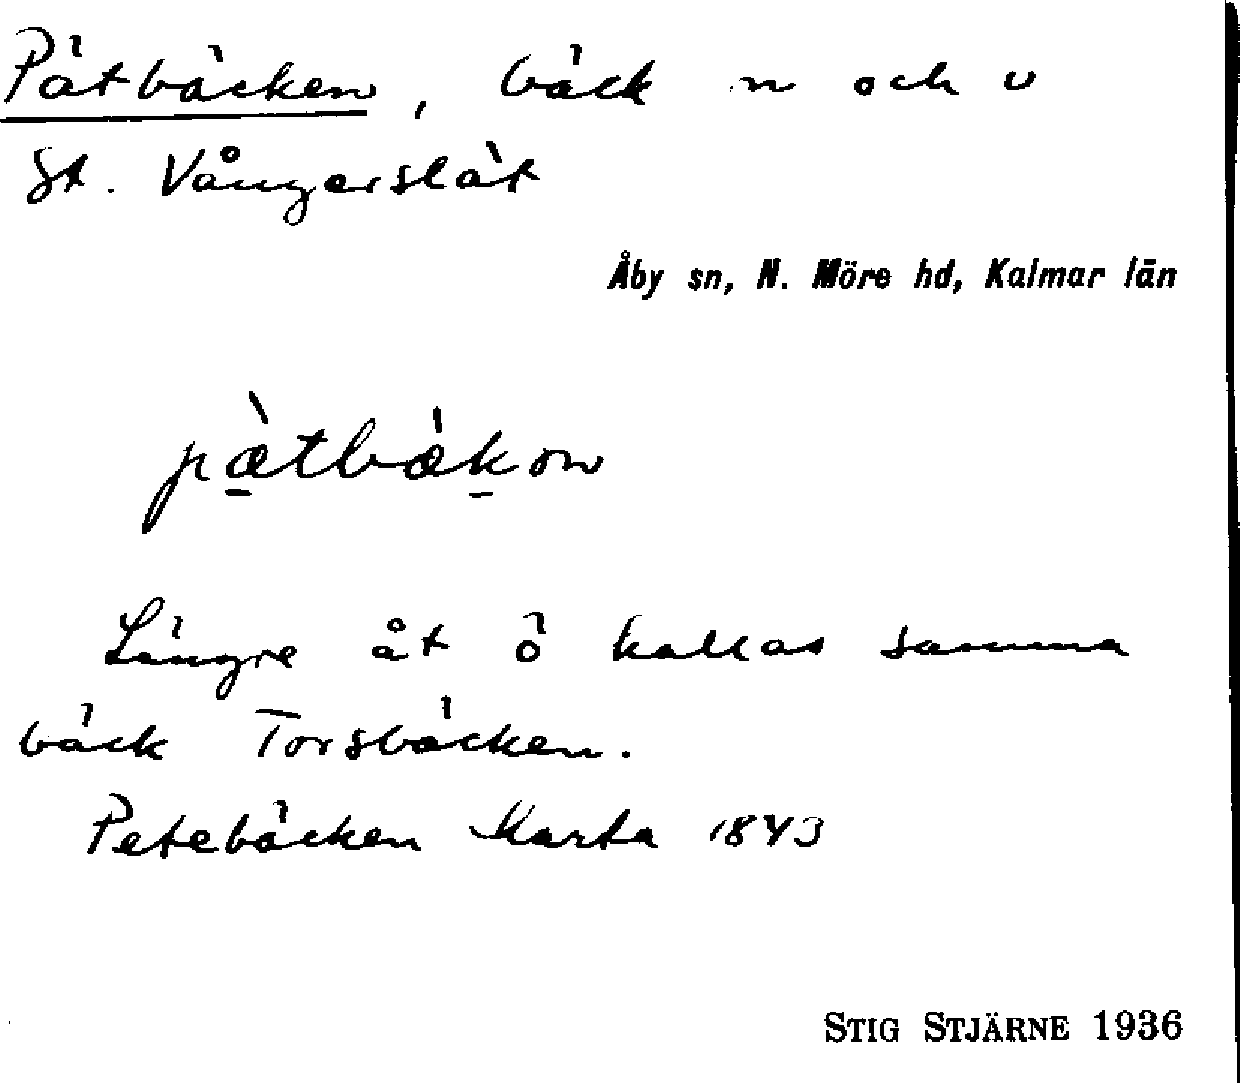 Pätbäcken, bäck n och v
St. Vångerslät
Åby sn, N. Möre hd, Kalmar län
pæ̀tbækən
Längre åt ö kallas samma
bäck Torsbäcken.
Petebäcken Karta 1843
STIG STJÄRNE 1936